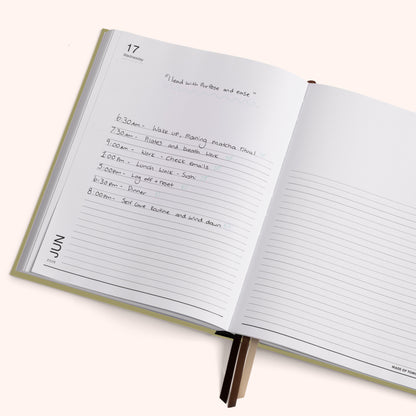 17
Wednesday
"I lead with Purpose and ease"
6:30am - Wake up, Morning Matcha ritual
7.30am - Pilates and breath work
9.00am - Work - Check emails
1.00pm - Lunch Walk - Sun
5:00pm - Log off + reset
6:30pm - Dinner
8.00pm - Self love routine and wind down
JUN
MADE OF